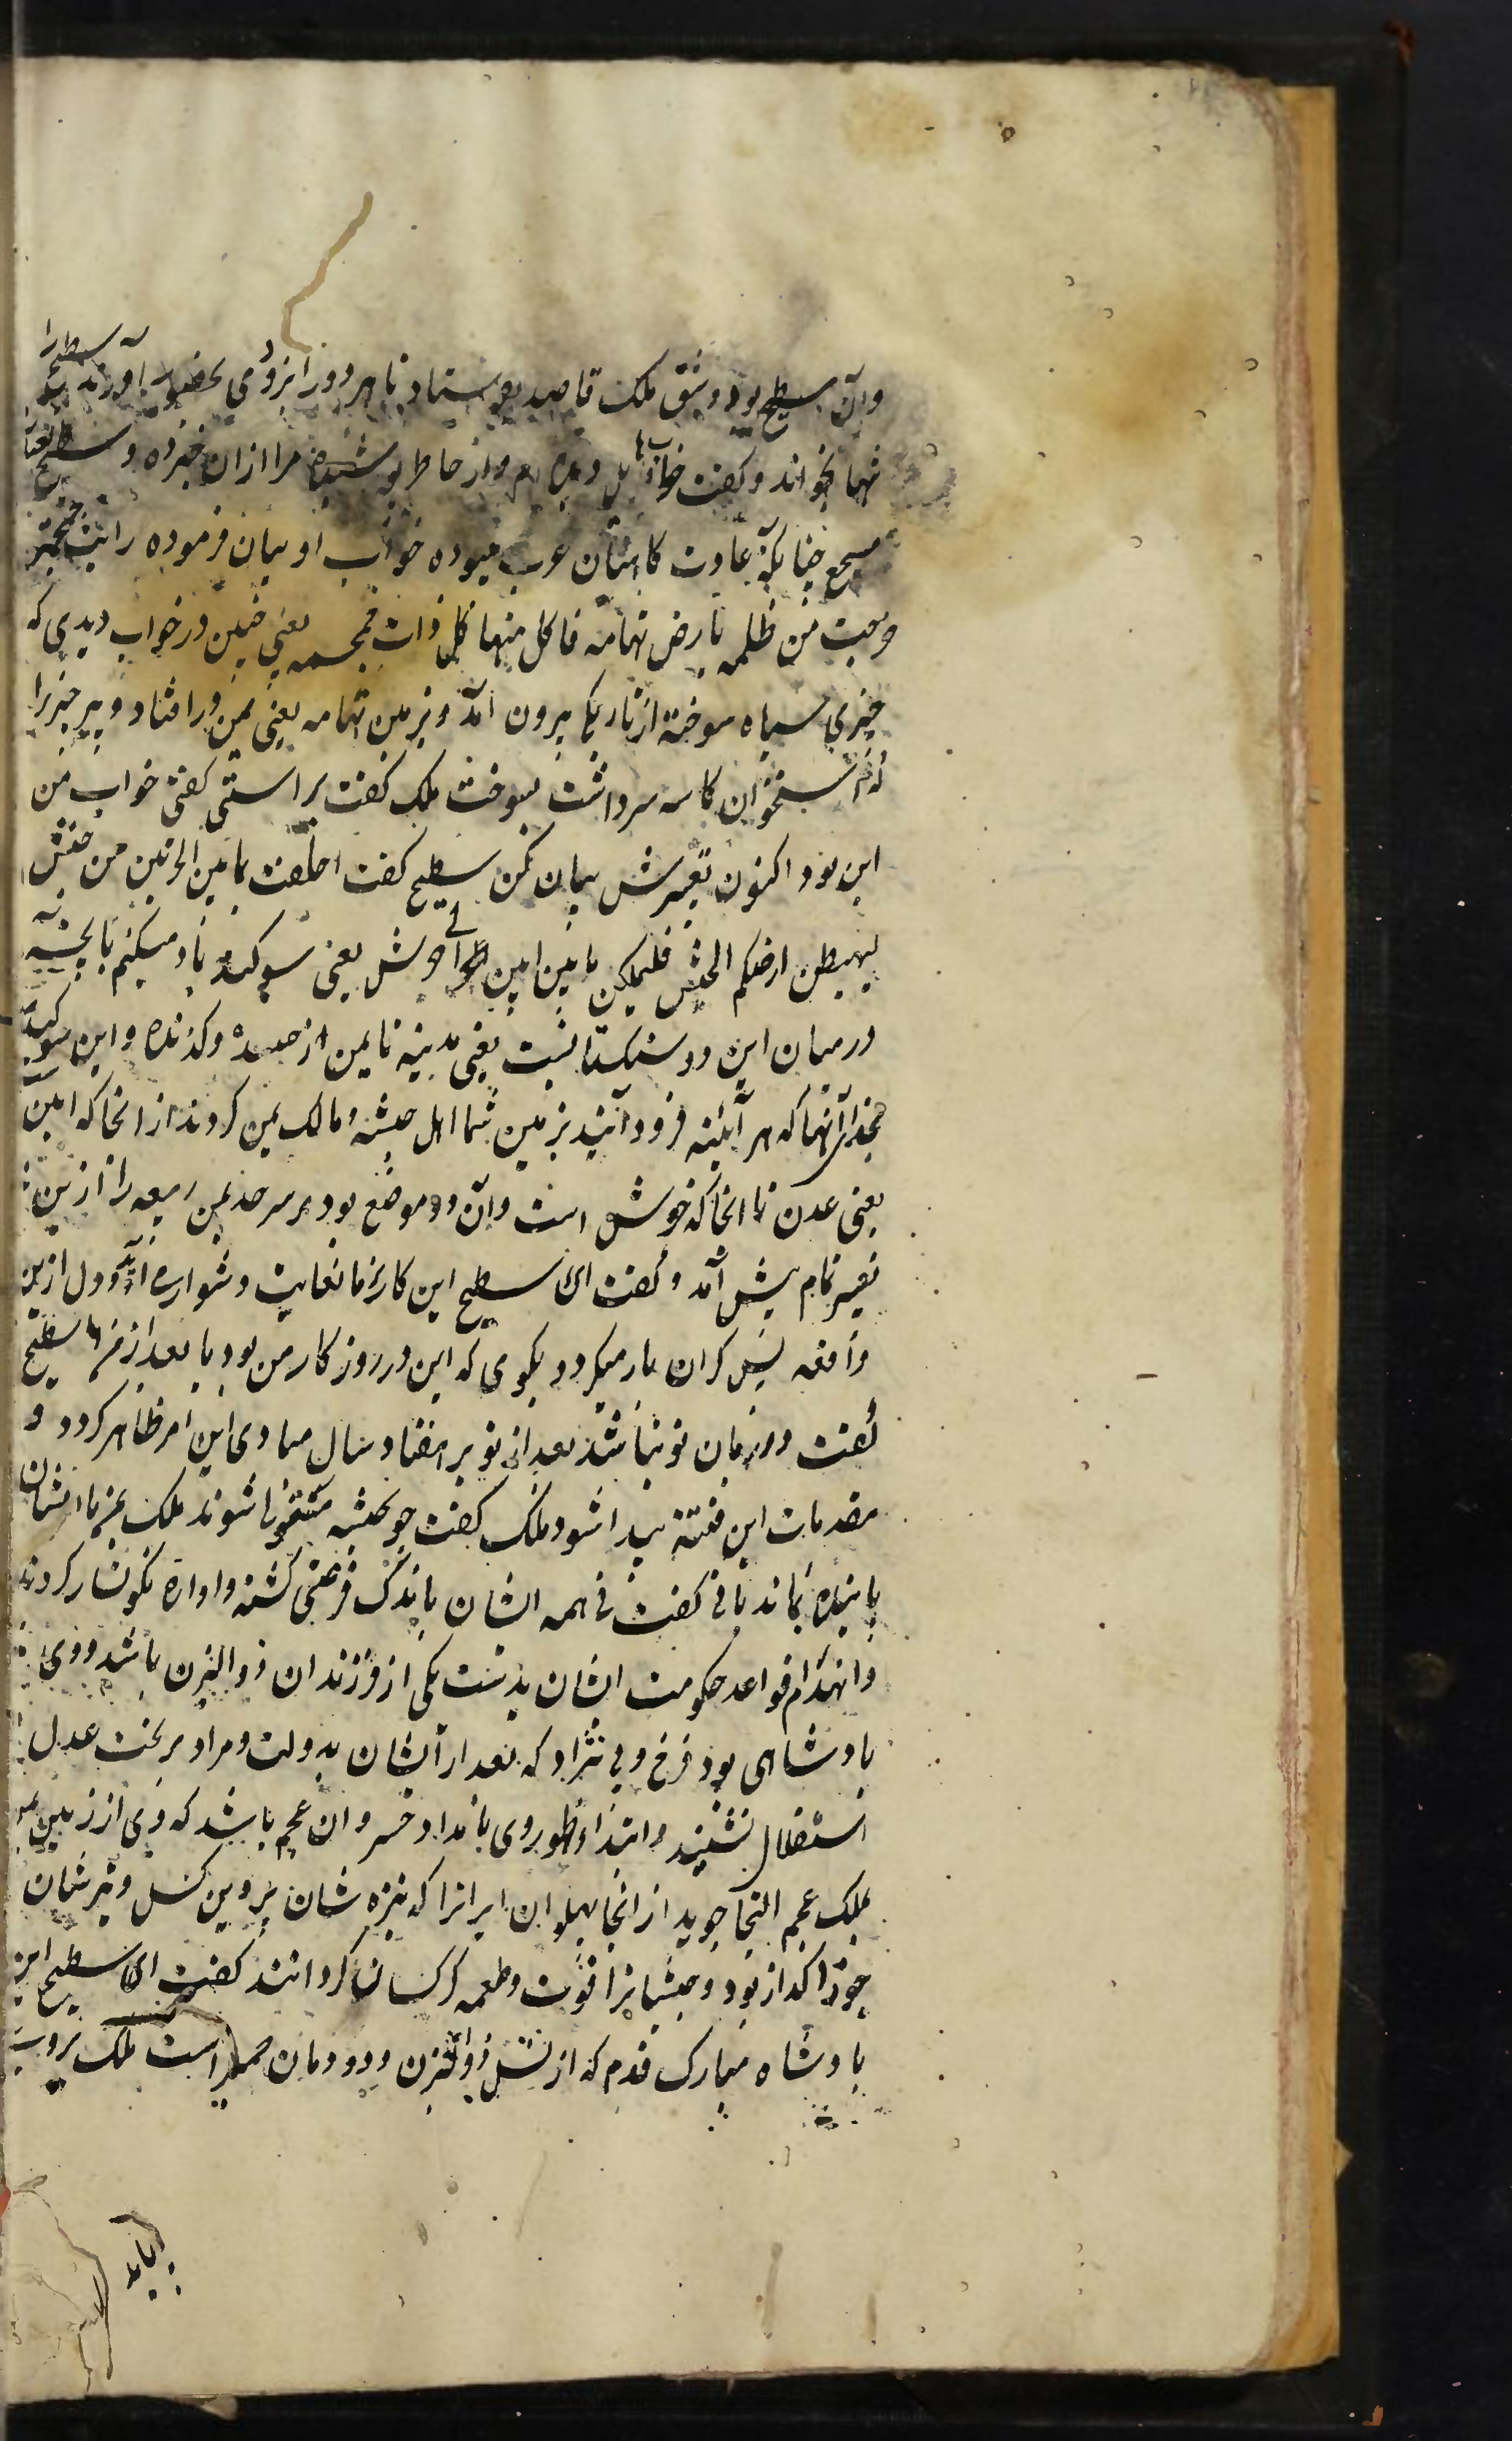 وآن سطیح بود و شق ملک قاصد بفرستاد تا هر دو را بزودی بحضور آورند سطیح را
تنها بخواند و کفت خوابی هایل دیده ام و از خاطر پوشیده مرا ازان خبر ده و سطیح
مسجع چنانکه عادت کاهنان عرب میبوده خواب او بیان فرموده رایت جمجمه
خرجت من ظلمه بارض تهامه فاکل منها کل ذات جمجمه یعنی چنین در خواب دیدی که
چیزی سیاه سوخته از تاریکی بیرون آمد و بزمین تهامه یعنی یمن در افتاد و هر چیز را
که استخوان کاسه سر داشت بسوخت ملک کفت براستی کفتی خواب من
این بود اکنون تعبیرش بیان کن سطیح کفت احلفت بما بین الحرتین من حنش
لیهبطن ارضکم الحبش فلیملکن مابین ابین الی جرش یعنی سوکند یاد میکنم بانچه
درمیان این دو سنکستانست یعنی مدینه تا یمن از چرنده و کزنده و این سوکند
بخدای آنها که هر آئینه فرود آیند بزمین شما اهل حبشه و مالک یمن کردند از انجا که ابین
یعنی عدن تا انجا که جرش است و آن دو موضع بود بر سر حد یمن ربیعه را ازین
تعبیر تمام پیش آمد و کفت ای سطیح این کار بر ما بغایت دشوار می آید و دل ازین
واقعه بس کران بار میکردد بکوی که این در روزکار من بود یا بعد از من سطیح
کفت در زمان تو نباشد بعد از تو بر هفتاد سال مبادی این امر ظاهر کردد و
مقدمات این فتنه پیدا شود ملک کفت چو حبشه مستولی شوند ملک یمن با ایشان
پاینده بماند یا نی کفت نی همه ایشان باندک فرصتی کشته و اواره نکونسار کردند
و انهدام قواعد حکومت ایشان بدست یکی از فرزندان ذوالیزن باشد و وی
بادشاهی بود فرخ وی نژاد که بعد از ایشان بدولت و مراد بر تخت عدل
استقلال نشیند و ابتداء ظهور وی بامداد خسروان عجم باشد که وی از زمین یمن
بملک عجم التجا جوید از انجا پهلوان ایرانرا که نیزه شان پروین کسل و تیرشان
جوزا کداز بود و حبشیانرا قوت و طعمه کرکسان کردانند کفت ای سطیح این
بادشاه مبارک قدم که از نسل ذوالیزن و دودمان حمیر است ملک بروی
بیاید